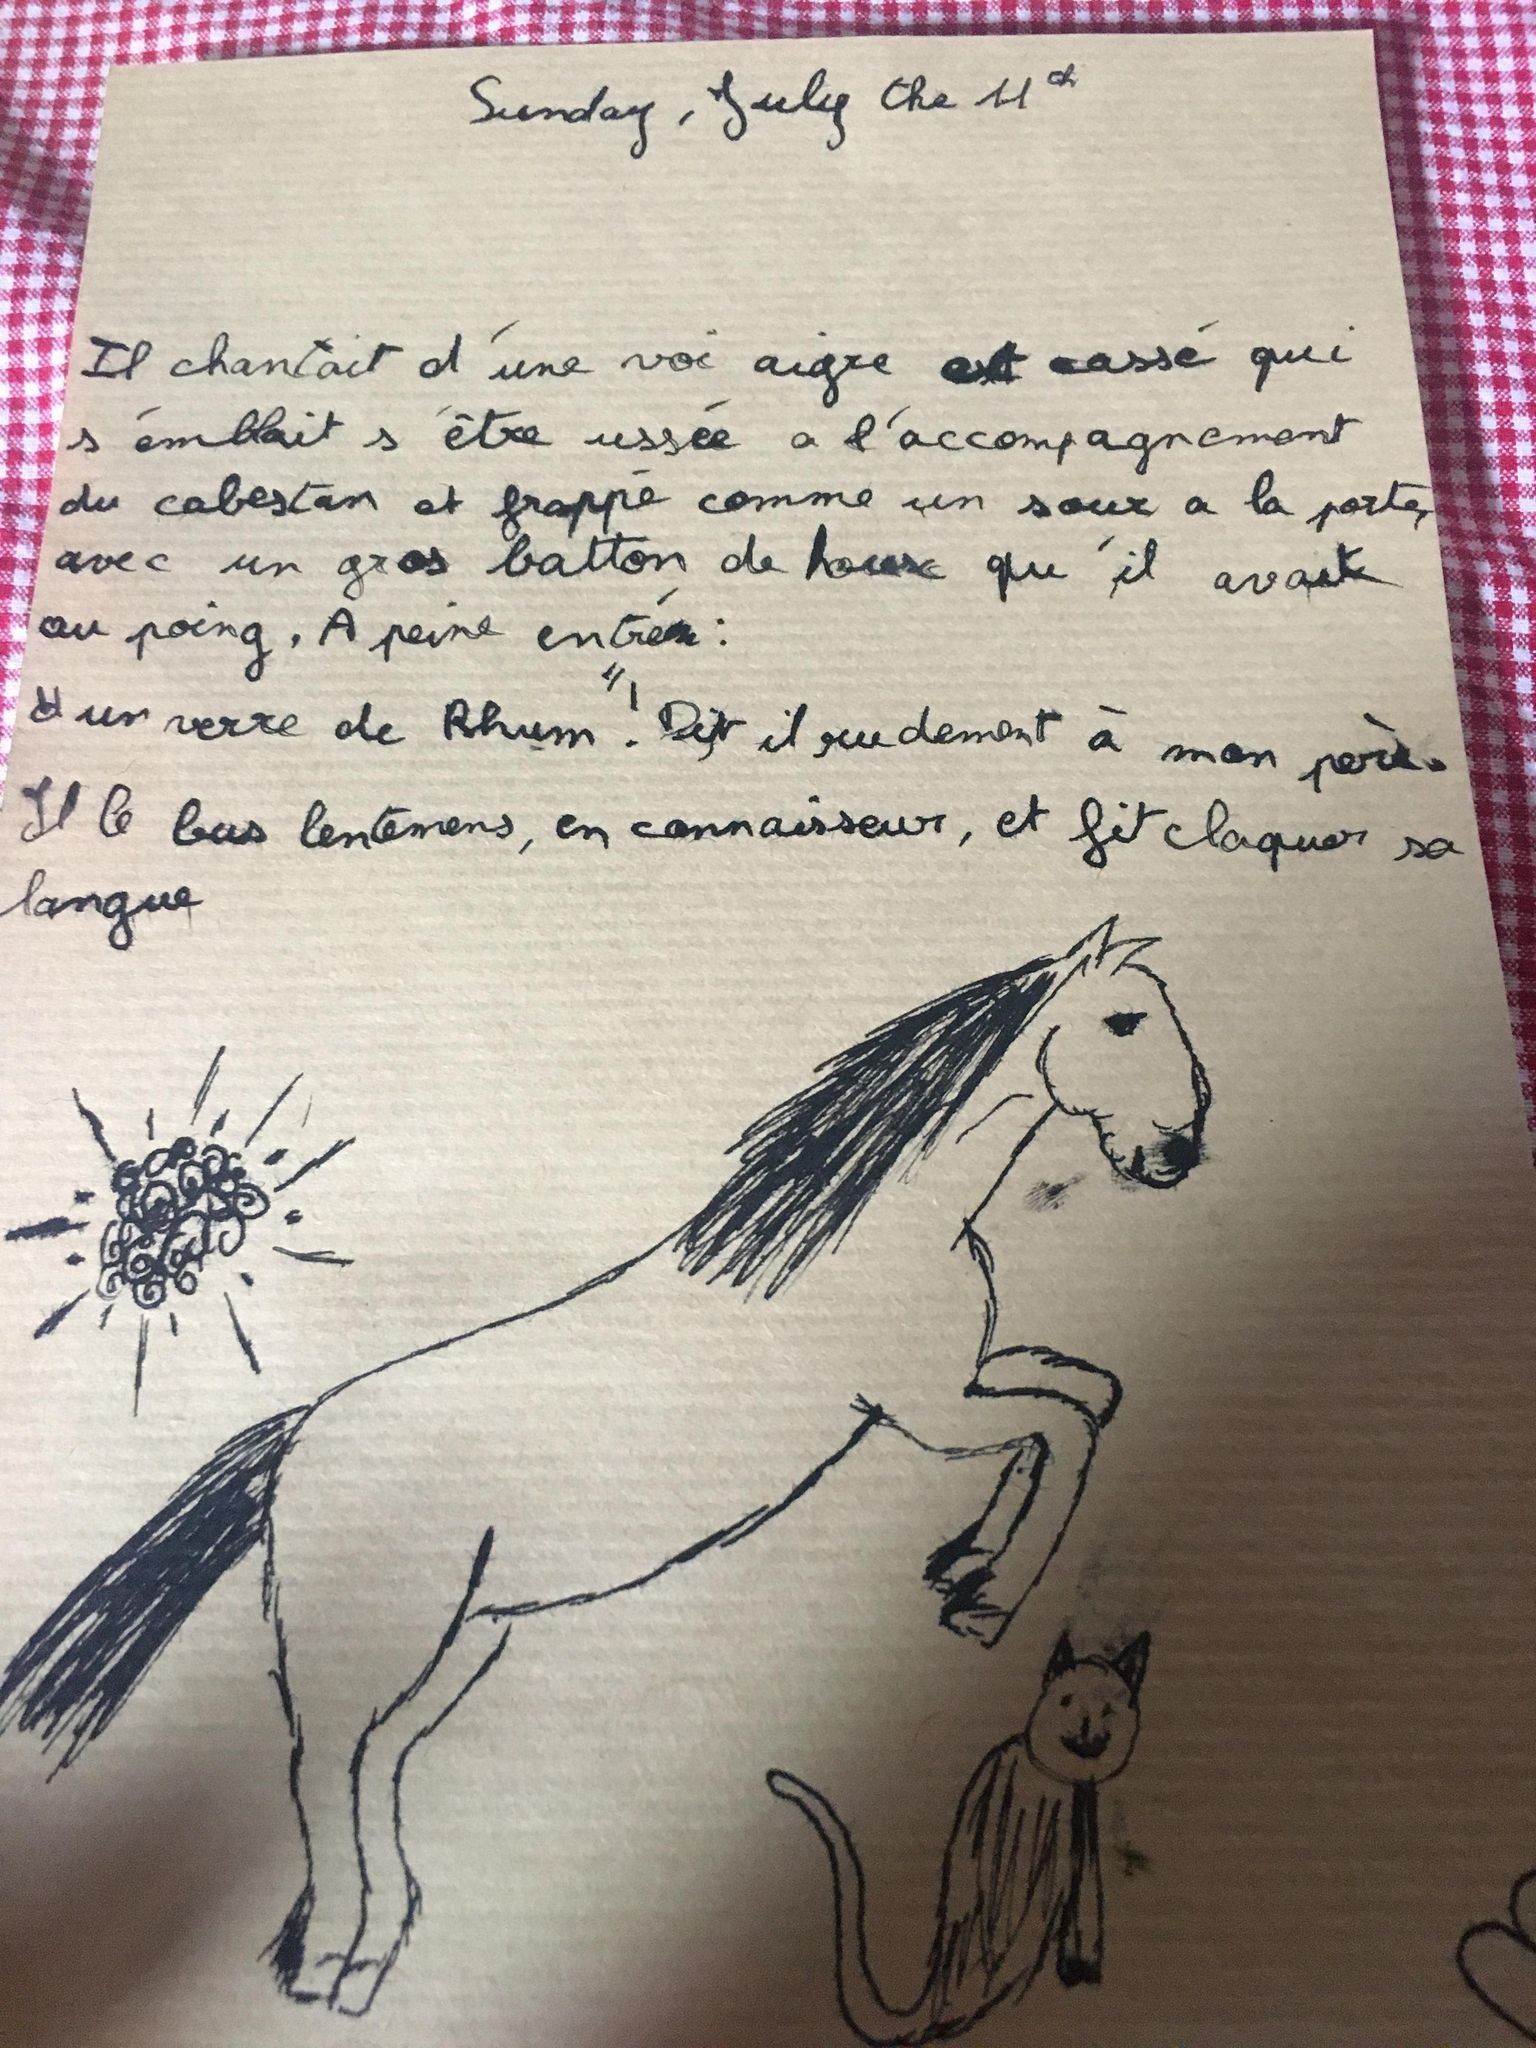 Sunday, July the 11th
Il chantait d'une voi aigre et cassé qui
s'emblait s'être ussée a l'accompagnement
du cabestan et frappé comme un sour a la porte,
avec un gros batton de houx qu'il avait
au poing. A peine entré:
"un verre de Rhum"! Dit il rudement à mon père.
Il le bus lentemens, en connaisseur, et fit claquer sa
langue